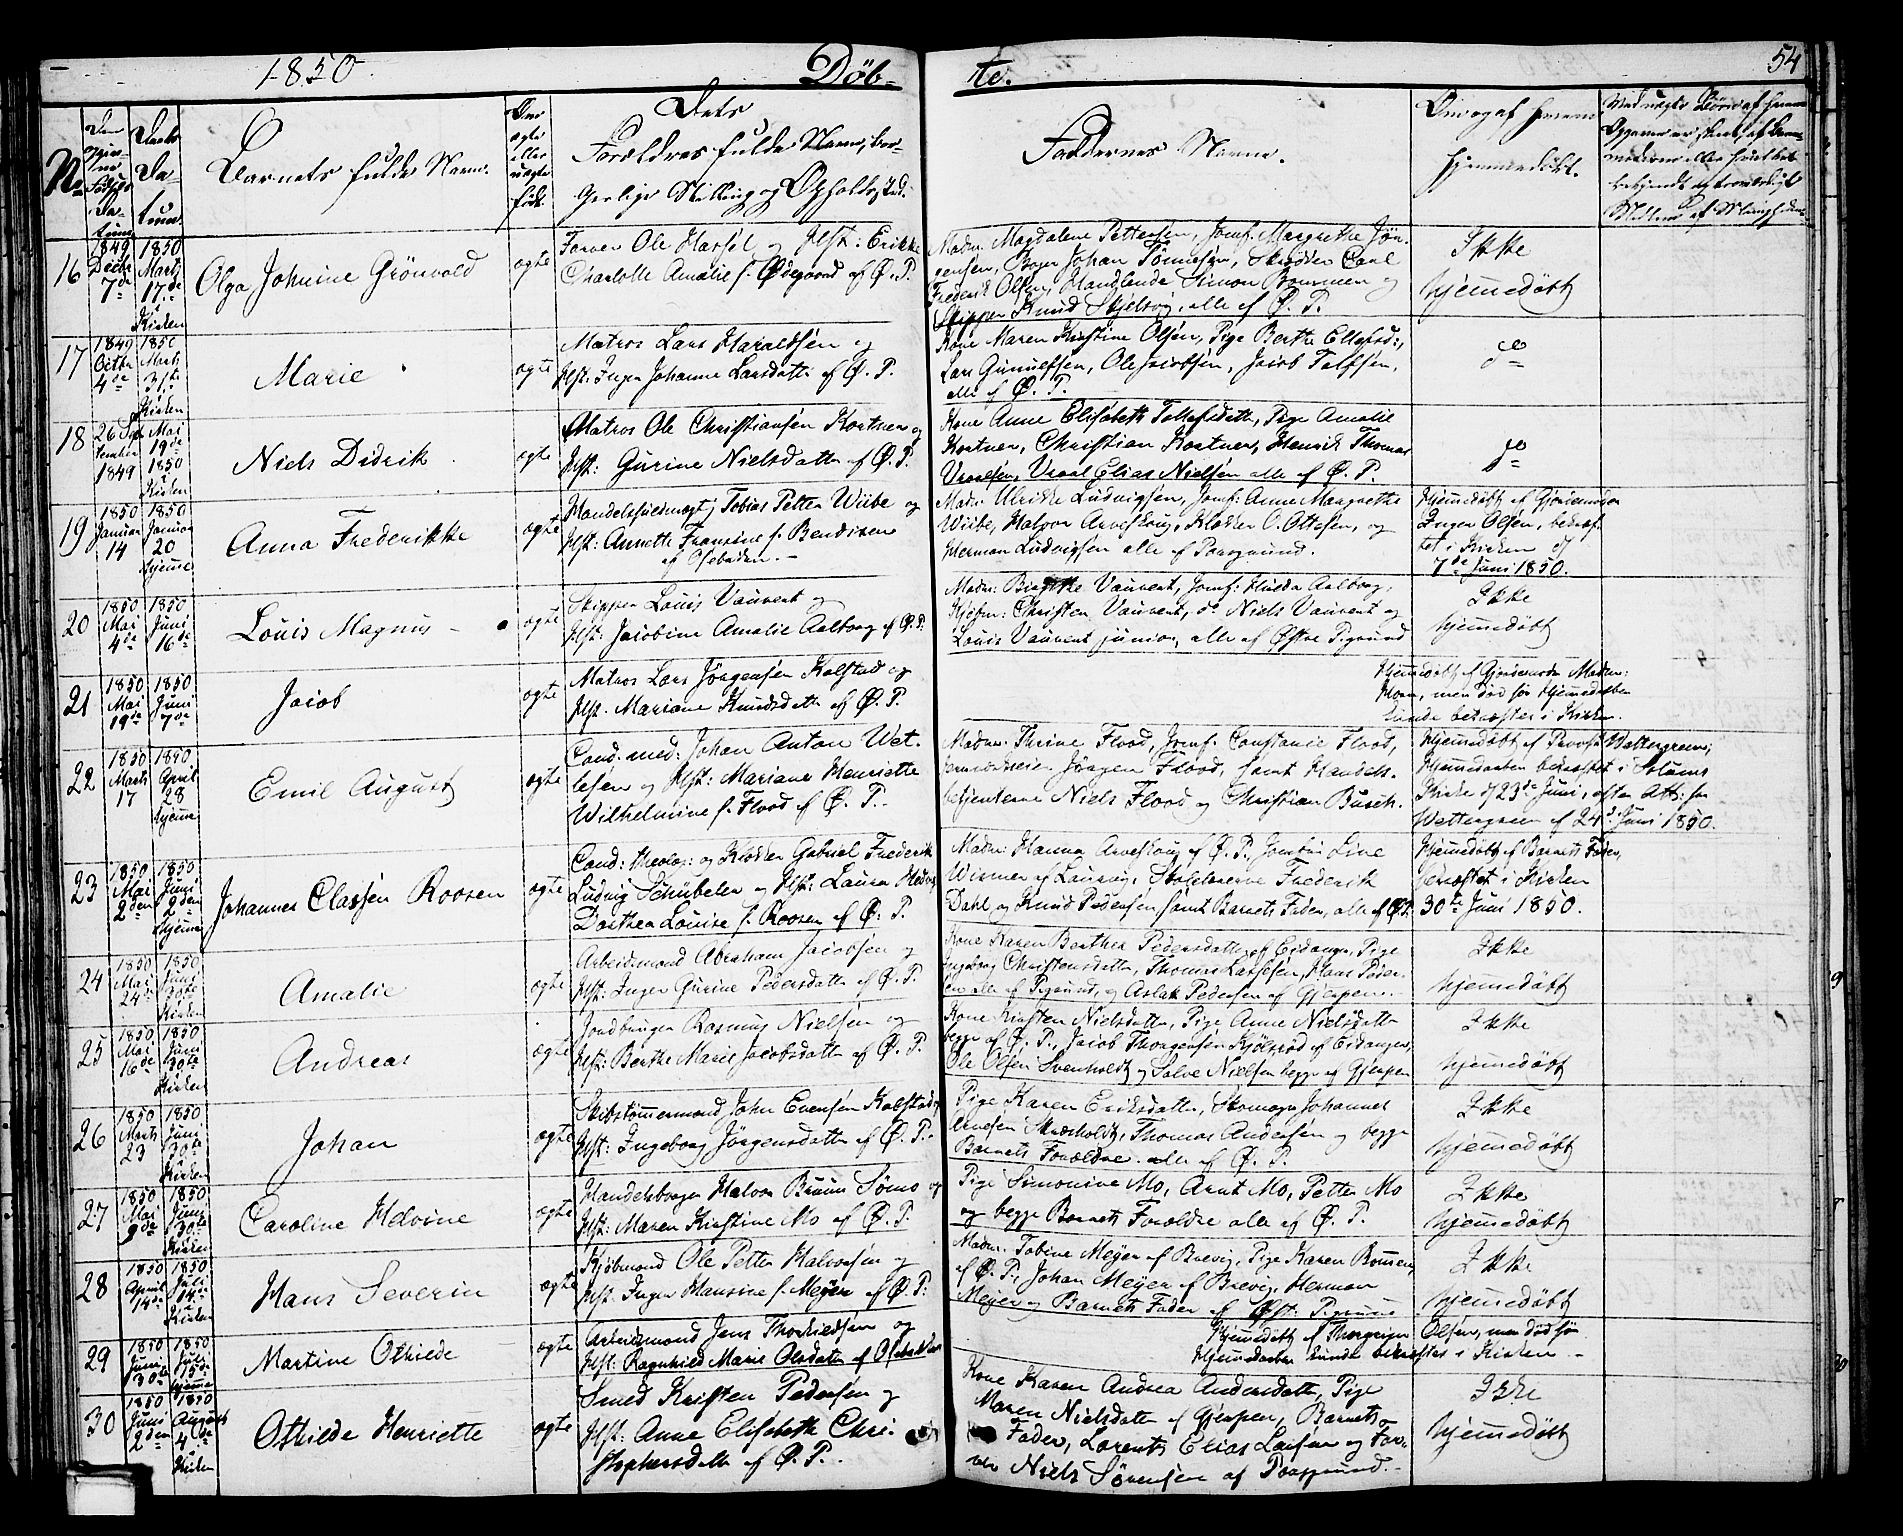 1850. Døb- te. 54
No
Barnets fulde Navn.
Dets
Forældres fulde Navne, bor-
gerlige Stilling og Opholdssted.
Faddernes Navne.
Om og af hvem
hjemmedøbt.
16
1849 Decbr 7de
1850 Marts 17de i Kirken
Olga Johnine Grönvold
ægte
Farver Ole Hassel og Hst: Erikke
Charlotte Amalie f. Ødegaard af Ø. P.
Madm. Magdalene Pettersen, Jomf. Margrethe Jön-
gensen, Bager Johan Tönnesen, Skrædder Carl
Frederik Olsen, Handlende Simon
Skipper Knud alle af Ø. P.
Ikke
hjemmedøbt
17
1849 Octbr 4de
1850 Marts 31te i Kirken
Marie
ægte
Matros Lars Haraldsen og
Hst: Inger Johanne Larsdatter af Ø. P.
Kone Maren Kirstine Olsen, Pige Berthe Ellefsd:,
Lars Gunulfsen, Ole Jacobsen, Jacob
alle af Ø. P.
do
18
26 September 1849
Mai 19de 1850 i Kirken
Niels Didrik
ægte
Matros Ole Christiansen Kortner og
Hst: Gurine Nielsdatter af Ø. P.
Kone Anne Elisabeth Tollefsdatter, Pige Amalie
Kortner, Christian Kortner, Henrik Thomas
Elias Nielsen alle af Ø. P.
do
19
1850 Januar 14
1850 Januar 20 hjemme
Anna Frederikke
ægte
Handelsfuldmægt: Tobias Petter Wiibe og
Hst: Annette Fransine f. Bendixen
af Osebakken
Madm: Ulrikke Ludvigsen, Jomf: Anne Margrethe
Wiibe, Halvor Arveskoug, Klokker O. Ottesen, og
Herman Ludvigsen alle af Porsgrund.
Hjemmedøbt af Gjordemoder
Inger Olsen, bekræf-
tet i Kirken
7de Juni 1850.
20
1850 Mai 4de
1850 Juni 16de
Louis Magnus
ægte
Skipper Louis Vauvert og
Hst: Jacobine Amalie Aalborg af Ø. P.
Madm: Birgitte Vauvert, Jomf: Hulda Aalborg,
Kjøbm: Christen Vauvert, do Niels Vauvert og
Louis Vauvert junior, alle af Østre Pigrund
Ikke
hjemmedøbt
21
1850 Mai 19de
1850 Juni 7de
Jacob
ægte
Matros Lars Jørgensen Kolstad og
Hst. Mariane Knudsdatter af Ø. P.
Hjemmedøbt af Gjordemoder Madm:
Horn, men død før Hjemmedaaben
kunde bekræftes i Kirken.
22
1850 Marts 17
1850 April 28 hjemme
Emil August
ægte
Cand. med: Johan Anton Wet-
lesen og Hst: Mariane Henriette
Wilhelmine f. Flood af Ø. P.
Madm: Thrine Flood, Jomf. Constance Flood,
Jørgen Flood, samt Handels-
betjenterne Niels Flood og Christian Busch.
Hjemmedøbt af Provst Wettergreen;
Hjemmedaaben bekræftet i Solums
Kirke d/23de Juni, efter Att: fra
Wettergreen af 24de Juni 1850.
23
1850 Mai 2den
1850 Juni 2den hjemme
Johannes Classen Roosen
ægte
Cand: theolog: og Klokker Gabriel Frederik
Ludvig Schübeler og Hst: Laura Hedvig
Dorthea Louise f. Roosen af Ø. P.
Madm: Hanna Arveskoug af Ø. P., Jomfru Line
Wismer af Laurvig, Skolelærerne Frederik
Dahl og Knud Pedersen samt Barnets Fader, alle af Ø. P.
Hjemmedøbt af Barnets Fader,
bekræftet i Kirken
30te Juni 1850.
24
1850 Mai 24de
1850 Juni 30te i Kirken
Amalie
ægte
Arbeidsmand Abraham Jacobsen og
Hst: Inger Gurine Pedersdatter af Ø. P.
Kone Karen Berthea Pedersdatter af Eidanger, Pige
Ingeborg Christensdatter, Thomas Lassesen, Hans Peder-
sen alle af Pigrund, og Aslak Pedersen af Gjerpen.
Ikke
hjemmedøbt
25
1850 Mai 16de
1850 Juni 30te i Kirken
Andreas
ægte
Jordbruger Rasmus Nielsen og
Hst: Berthe Marie Jacobsdatter af Ø. P.
Kone Kirsten Nielsdatter, Pige Anne Nielsdatter
begge af Ø. P., Jacob Thorgersen Kjølsrød af Eidanger,
Ole Olsen Svenholdt og Salve Nielsen begge af Gjerpen
Ikke
hjemmedøbt
26
1850 Marts 23
1850 Juni 30te i Kirken
Johan
ægte
Skibstømmermand John Evensen Kolstad og
Hst: Ingeborg Jørgensdatter af Ø. P.
Pige Karen Eriksdatter, Skomager Johannes
Arnesen Thomas Andersen og begge
Barnets Forældre alle af Ø. P.
Ikke
hjemmedøbt
27
1850 Mai 9de
1850 Juni 30te i Kirken
Caroline Helvine
ægte
Handelsborger Halvor Bruun Sømo og
Hst: Maren Kirstine Mo af Ø. P.
Pige Simonine Mo, Arnt Mo, Petter Mo
og begge Barnets Forældre alle af Ø. P.
Ikke
hjemmedøbt
28
1850 April 14de
1850 Juli 14de i Kirken
Hans Severin
ægte
Kjøbmand Ole Petter Halvorsen og
Hst. Inger Hansine f. Meyer af Ø. P:
Madm: Tobine Meyer af Brevig, Pige Karen
af Ø. P., Johan Meyer af Brevig, Herman
Meyer og Barnets Fader af Øst: Pigrund
Ikke
hjemmedøbt
29
1850 Juni 30te
1850 Juli 15de hjemme
Martine Othilde
ægte
Arbeidsmand Jens Thorkildsen og
Hst: Ragnhild Marie Olsdatter af Osebakken
Hjemmedøbt af Olsen, men død før
Hjemmedaaben kunde bekræftes i Kirken
30
1850 Juni 2den
1850 August 4de i Kirken
Othilde Henriette
ægte
Smed Kristen Pedersen og
Hst: Anne Elisabeth Chri-
stophersdatter af Ø. P.
Kone Karen Andrea Andersdatter, Pige
Maren Nielsdatter af Gjerpen, Barnets
Fader, Lorents Elias Larsen og Far-
ver Niels Sørensen af Porsgrund.
Ikke
hjemmedøbt